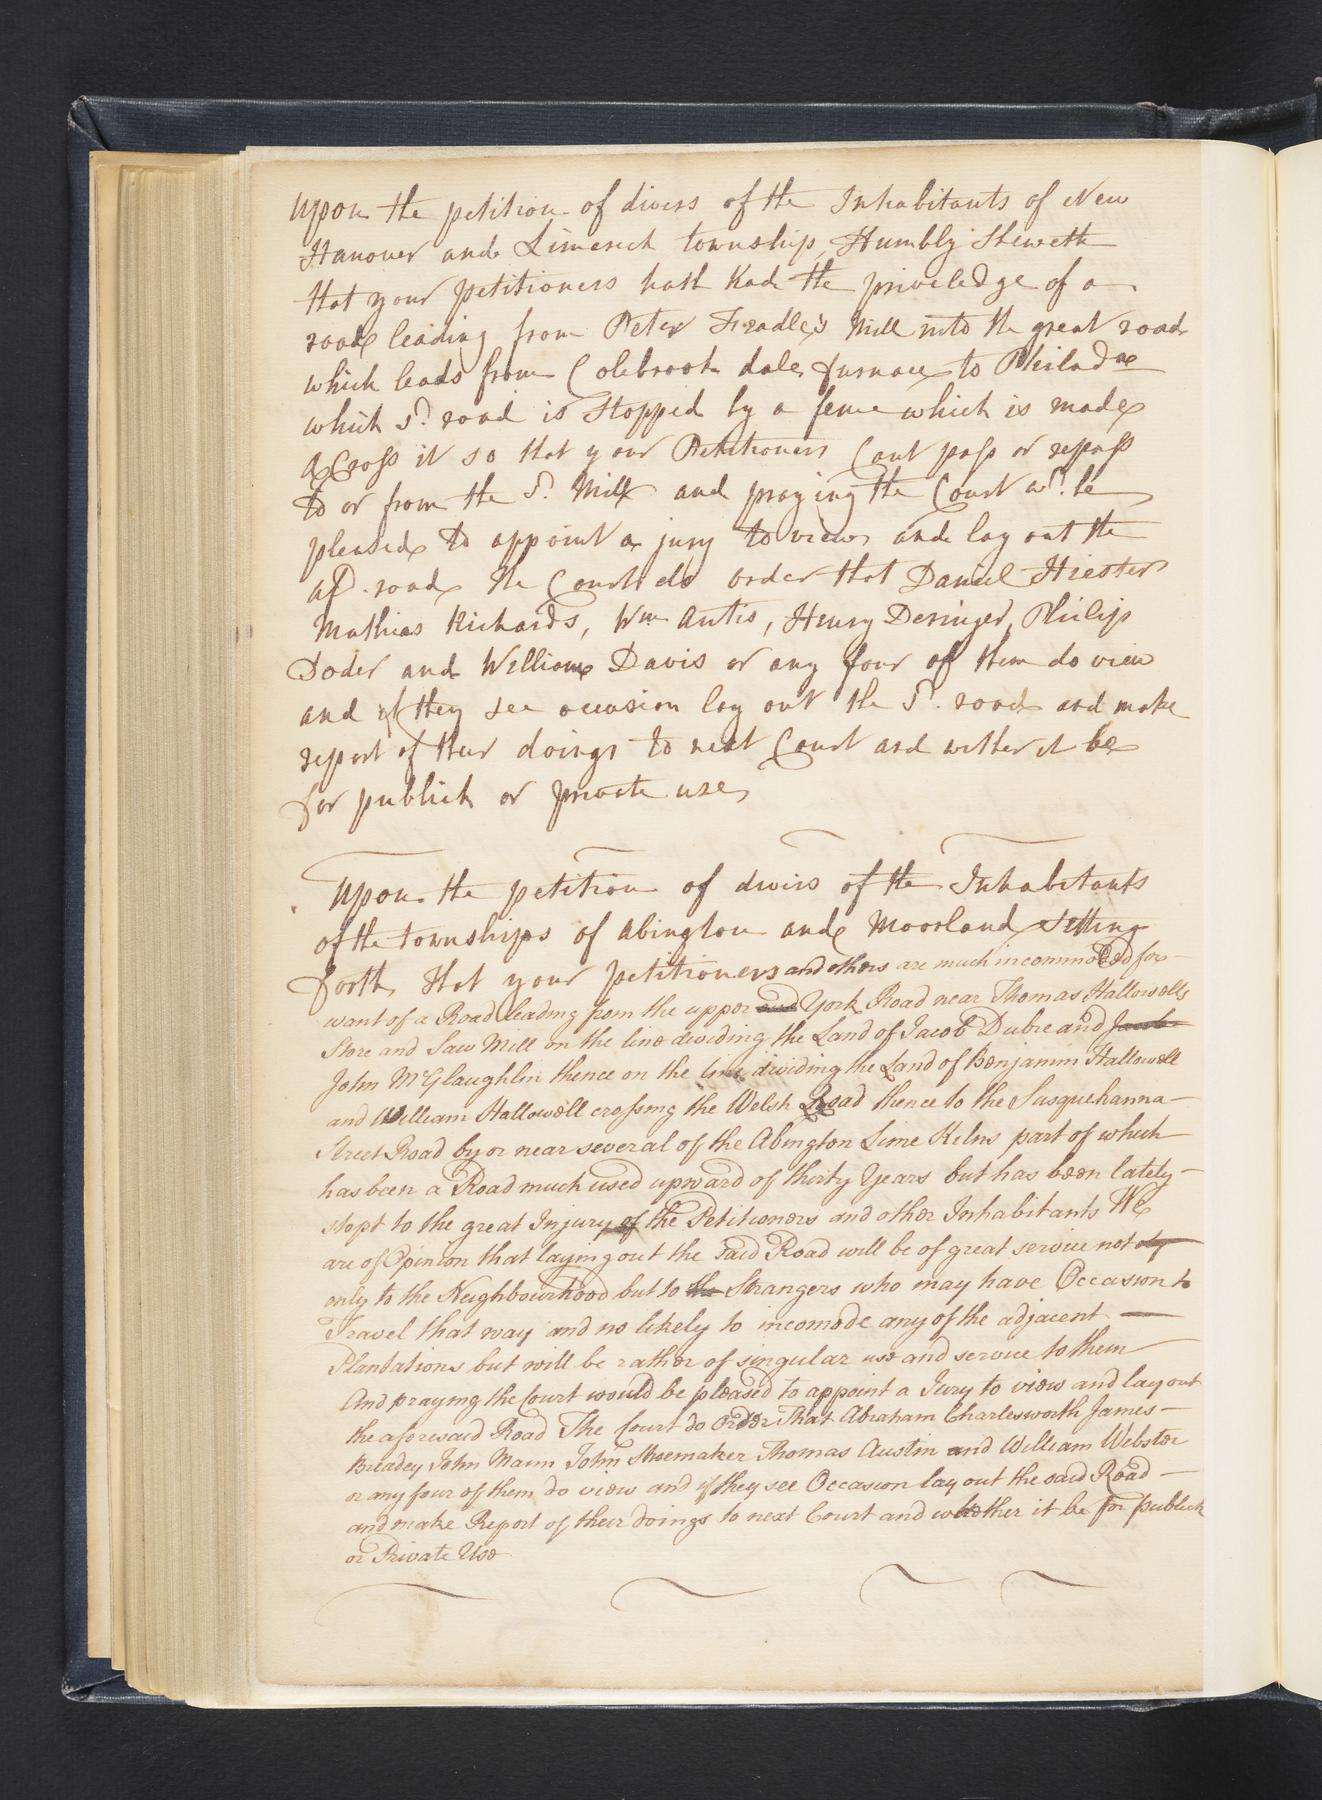 Upon the petition of divers of the Inhabitants of New
Hanover and Limerick township, Humbly Sheweth
that your petitioners hath had the priviledge of a
road leading from Peter Fradle's Mill into the great road
which leads from Colebrook dale furnace to Philad
which sd. road is Stopped by a fence which is made
aCross it so that your Petitioners Cant pass or repass
to or from the sd. Mill and praying the Court wd. be
pleased to appoint a jury to view and lay out the
afd. road the Court do order that Daniel Hiester
Mathias Richards, Wm Antis, Henry Deringer, Philip
Doder and William Davis or any four of them do view
and if they see occasion lay out the sd. road and make
report of their doings to next Court and wether it be
for publick or private use
Upon the petition of divirs of the Inhabitants
of the townships of Abington and Moorland Setting
forth That your petitioners and others are much incommoded for
want of a Road leading from the upper and York Road near Thomas Hallowells
Store and Saw Mill on the line dividing the Land of Jacob Dubre and Jacob
John McGlaughlin thence on the line dividing the Land of Benjamin Hallowell
and William Hallowell crossing the Welsh Road thence to the Susquehanna
Street Road by or near several of the Abington Lime Kilns part of which
has been a Road much used upward of thirty Years but has been lately
stopt to the great Injury of the Petitioners and other Inhabitants We
are of Opinion that laying out the said Road will be of great service not
only to the Neighbourhood but to the Strangers who may have Occasion to
Travel that way and no likely to incomode any of the adjacent
Plantations but will be rather of singular use and service to them
And praying the Court would be pleased to appoint a Jury to view and lay out
the aforesaid Road The Court do order That Abraham Charlesworth James
Breadey John Mann John Shoemaker Thomas Austin and William Webster
or any four of them do view and if they see Occasion lay out the said Road
and make Report of their doings to next Court and whether it be for publick
or Private Use